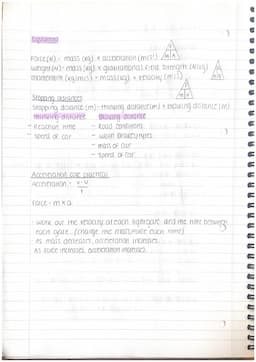 Equations
Force (N) = mass (kg) × acceleration (m/s²)
Weight (N) = mass (kg) × gravitational field strength (N/kg)
momentum (kg m/s) = mass (kg) × velocity (m/s)
Stopping distances
Stopping distance (m) = thinking distance (m) + braking distance (m)
thinking distance Braking distance
- reaction time - Road conditions
- speed of car - worn brakes/tyres
- mass of car
- speed of car
Acceleration core practical
Acceleration = v-u
t
Force = m × a
- work out the velocity at each light gate and the time between
each gate. (change the mass/force each time)
- As mass decreases, acceleration increases.
- As force increases, acceleration increases.